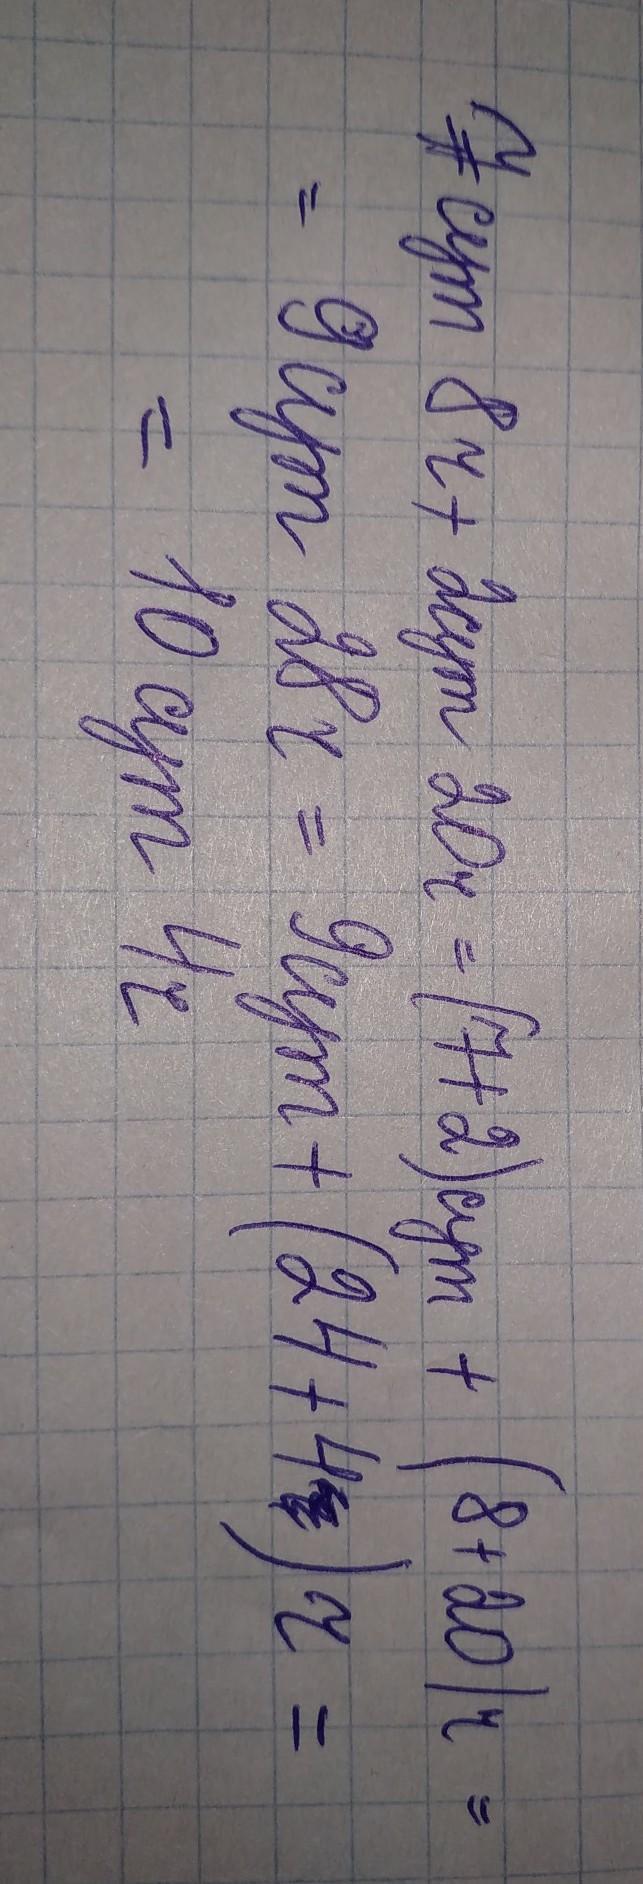 7 сут 8ч + 2сут 20ч = (7+2)сут + (8+20)ч =
= 9 сут 28ч = 9сут + (24+4)ч =
= 10 сут 4ч